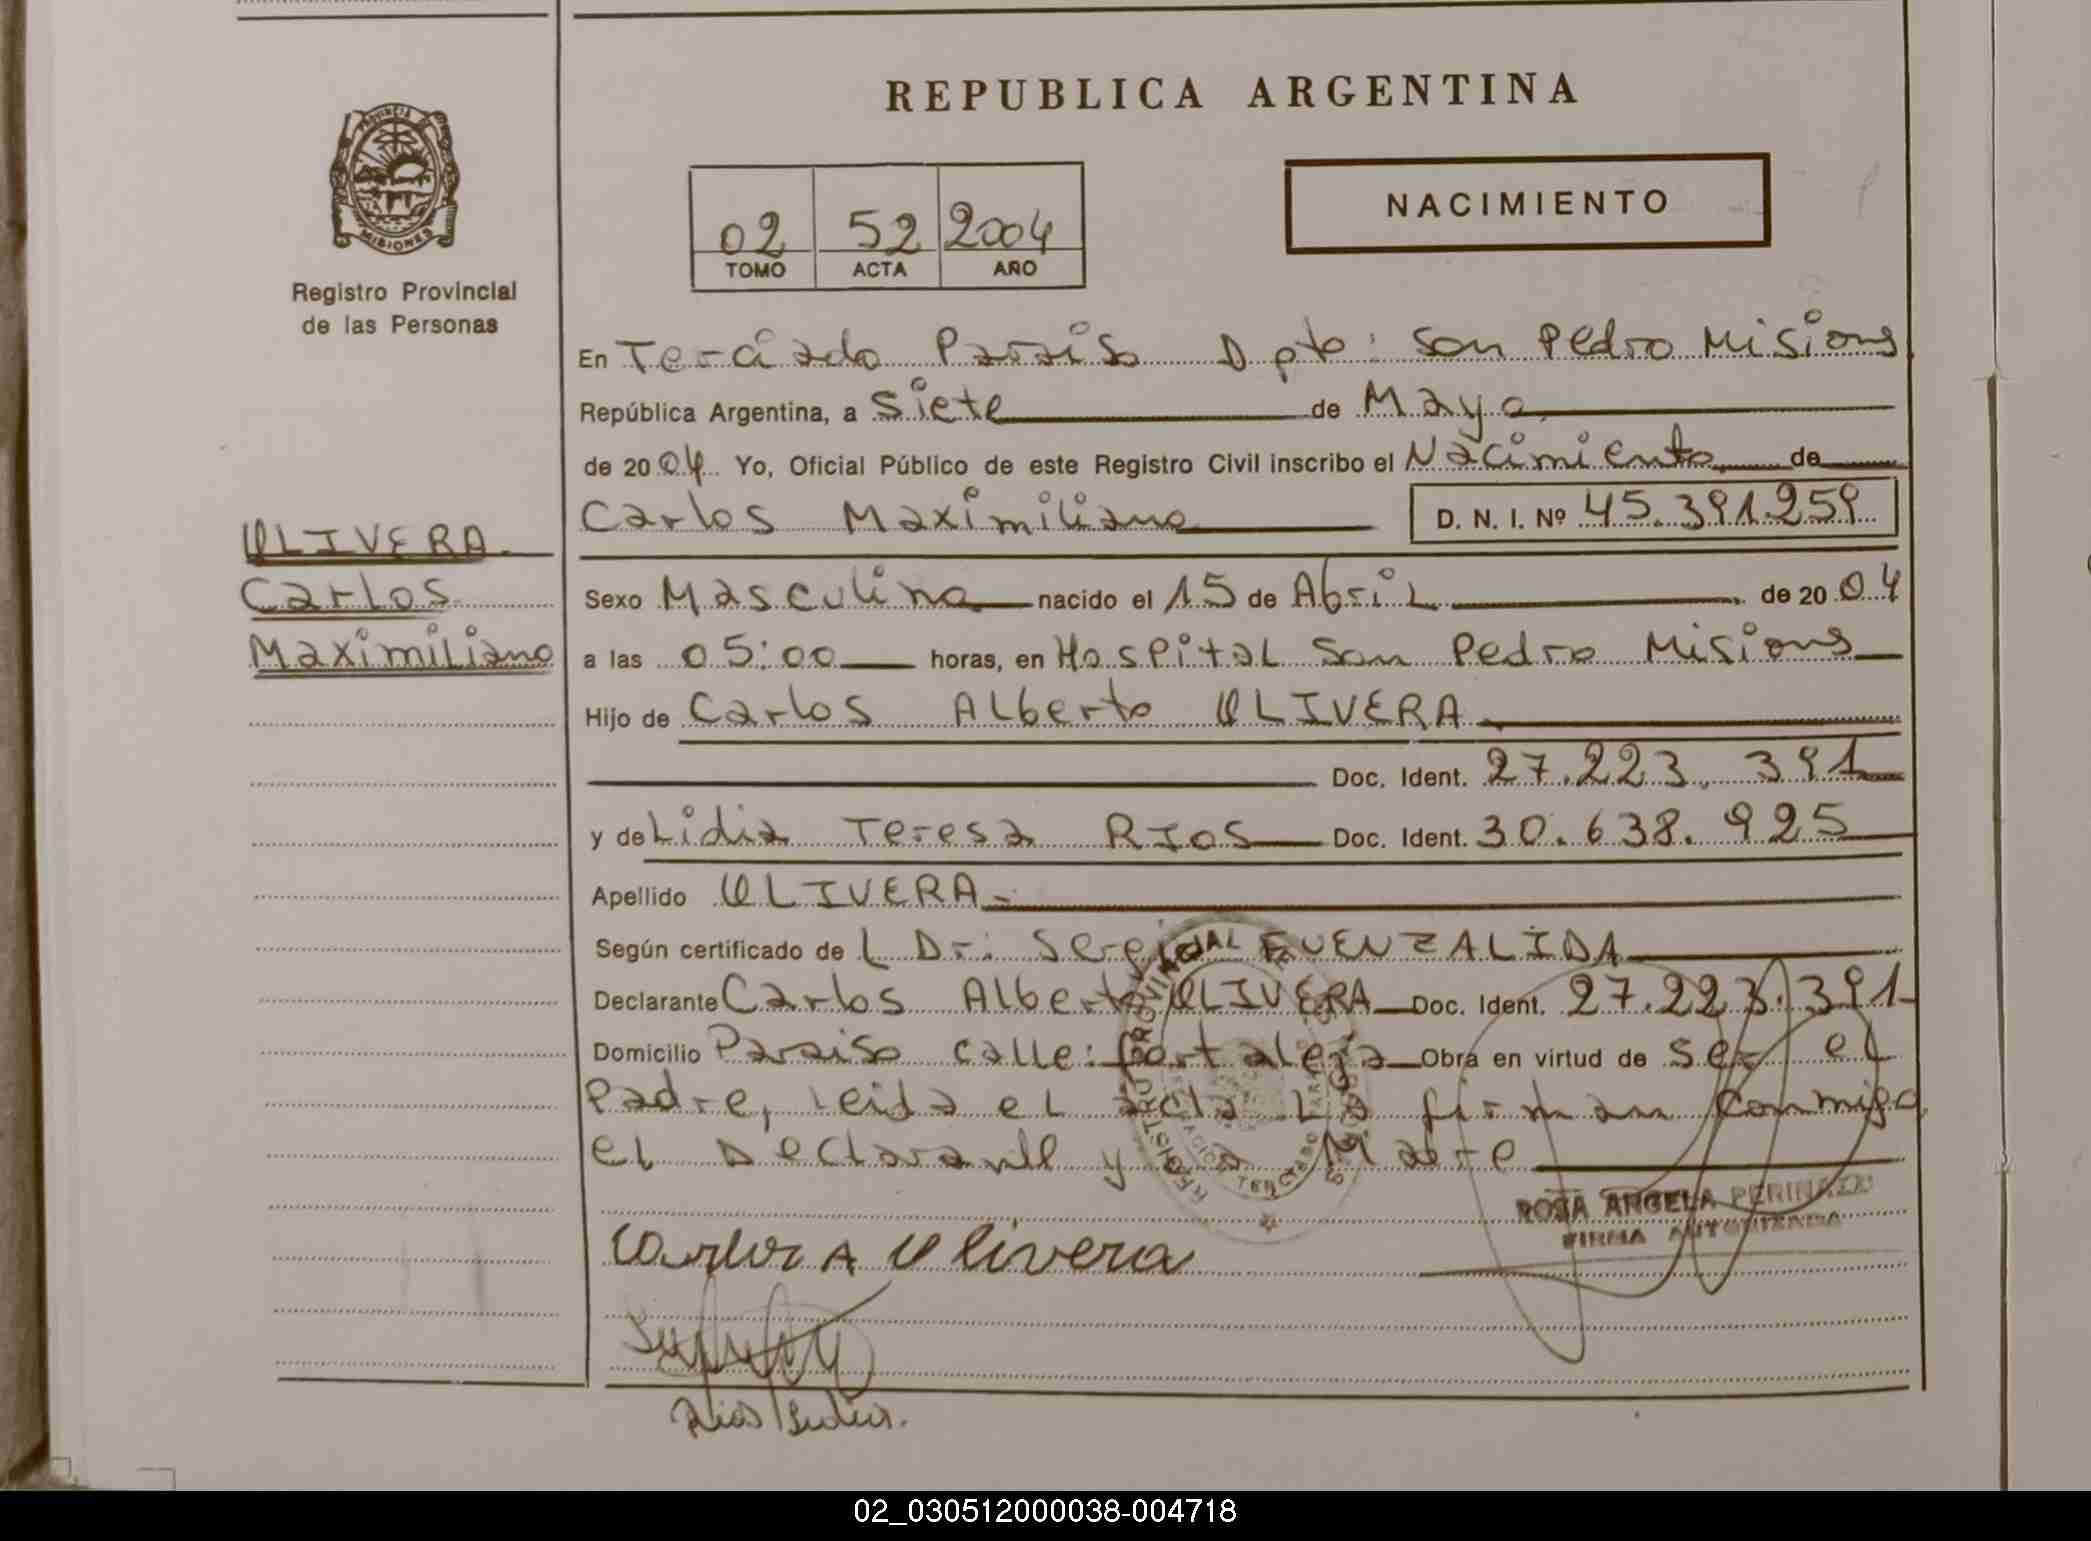 REPUBLICA ARGENTINA
PROVINCIA DE
MISIONES
Registro Provincial
de las Personas
02 52 2004
TOMO ACTA AÑO
NACIMIENTO
En Terciado Paraiso Dpto: San Pedro Misiones
República Argentina, a Siete de Mayo
de 2004 Yo, Oficial Público de este Registro Civil inscribo el Nacimiento de
Carlos Maximiliano D. N. I. Nº 45.391.259
OLIVERA
Carlos
Maximiliano
Sexo Masculino nacido el 15 de Abril de 2004
a las 05:00 horas, en Hospital San Pedro Misiones
Hijo de Carlos Alberto OLIVERA
Doc. Ident. 27.223.391
y de Lidia Teresa RIOS Doc. Ident. 30.638.925
Apellido OLIVERA
Según certificado de L Dr: Sergio FUENZALIDA
Declarante Carlos Alberto OLIVERA Doc. Ident. 27.223.391
Domicilio Paraiso calle: fortaleja Obra en virtud de ser el
Padre, leida el acta La firman conmigo
el Declarante y la Madre
REGISTRO PROVINCIAL DE
ROSA ANGELA
FIRMA AUTORIZADA
Carlos A Olivera
Rios
02_030512000038-004718